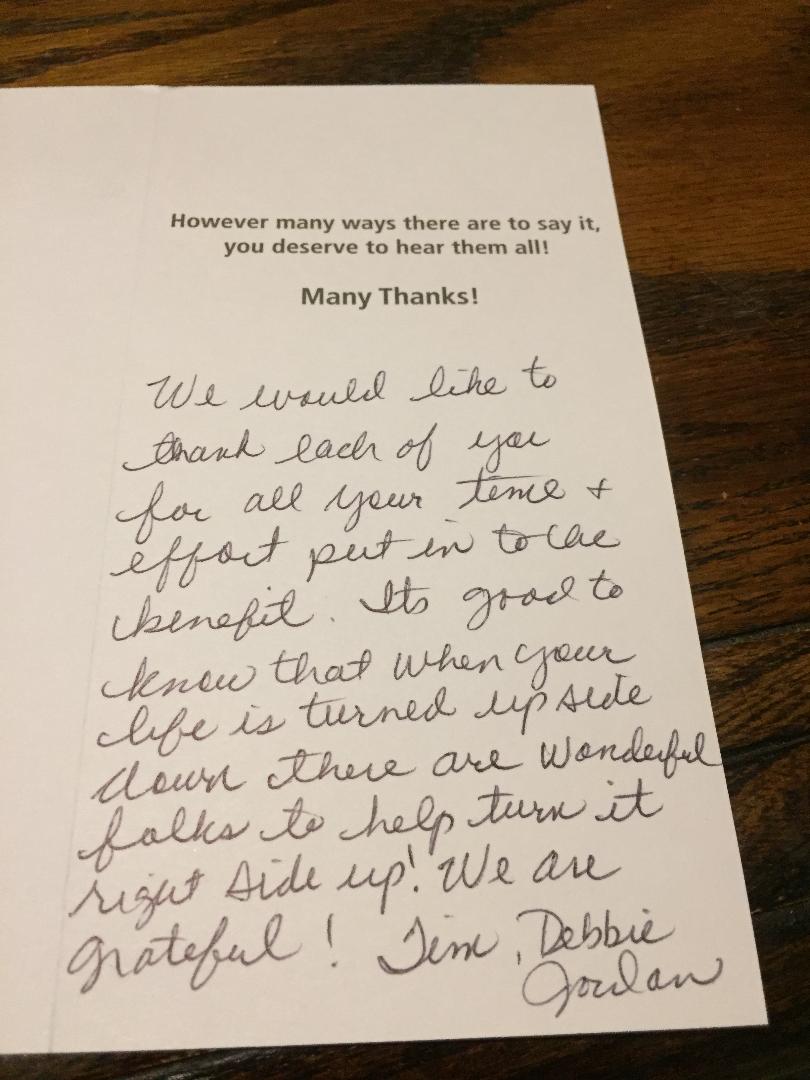 However many ways there are to say it,
you deserve to hear them all!
Many Thanks!
We would like to
thank each of you
for all your time +
effort put in to the
benefit. Its good to
know that when your
life is turned upside
down there are wonderful
folks to help turn it
right side up! We are
grateful! Tim, Debbie
Jordan